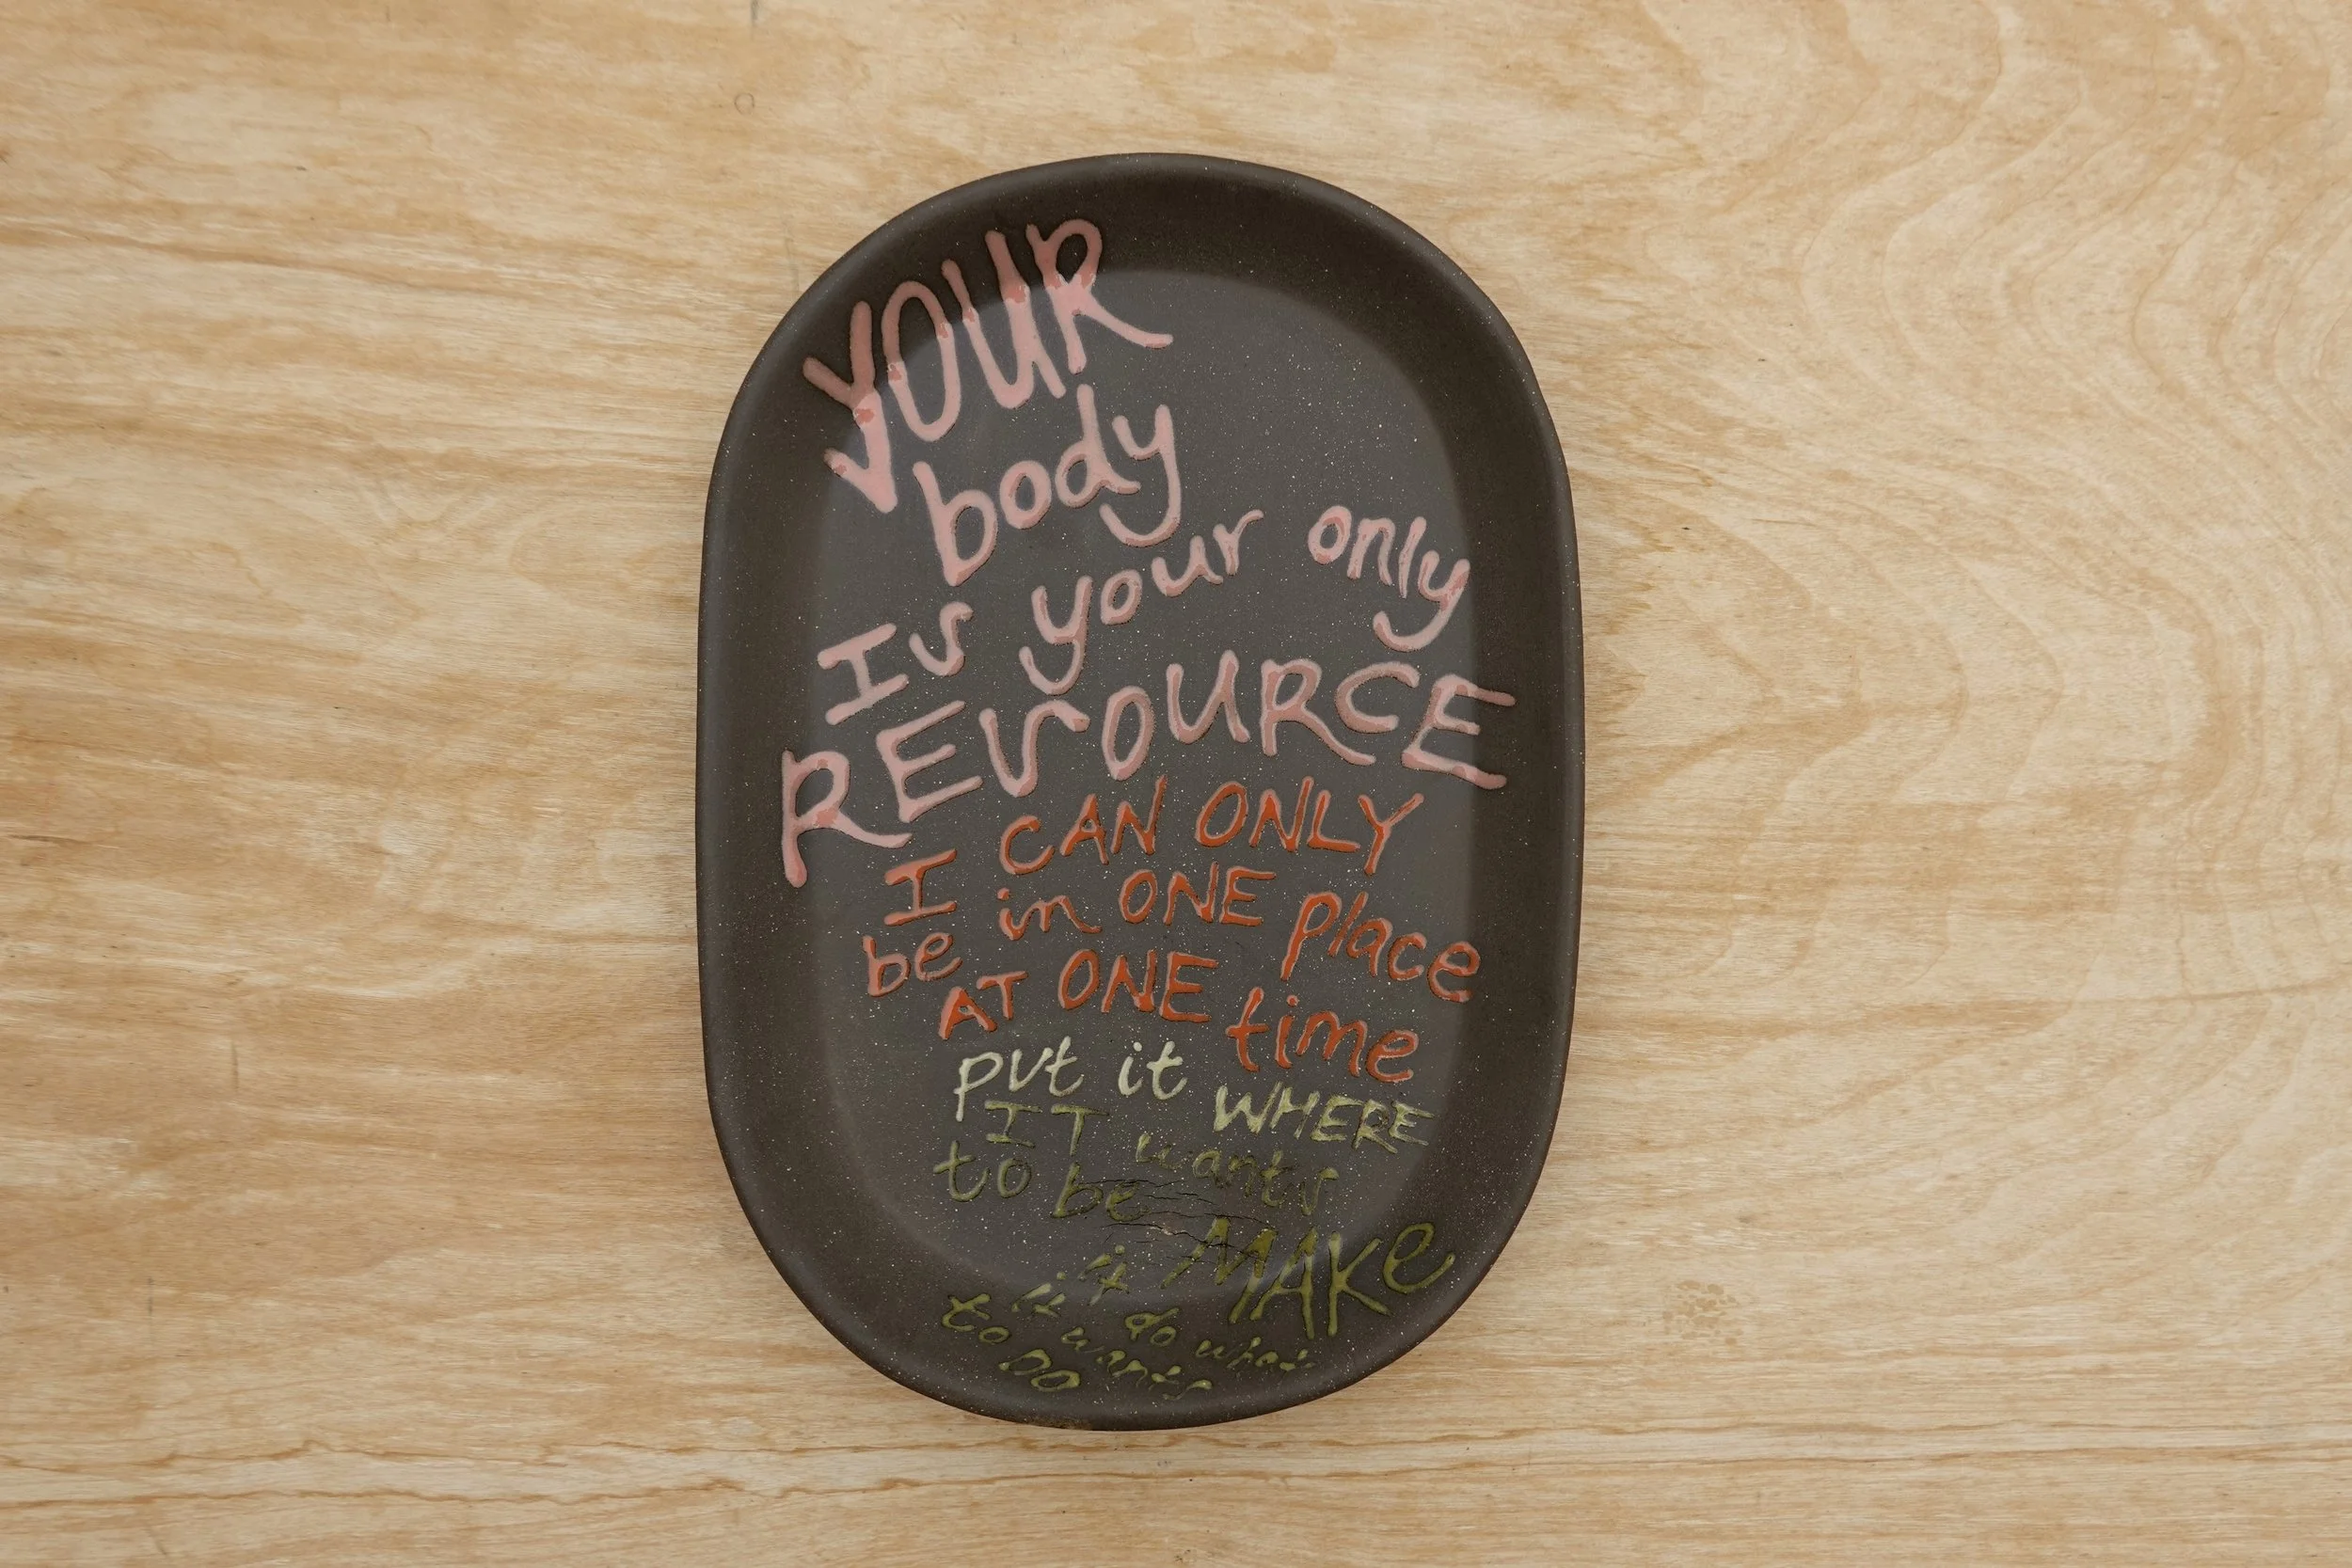 YOUR
body
Is your only
RESOURCE
I CAN ONLY
be in ONE place
AT ONE time
put it WHERE
IT wants
to be
MAKE
it
it do what
it wants
to DO